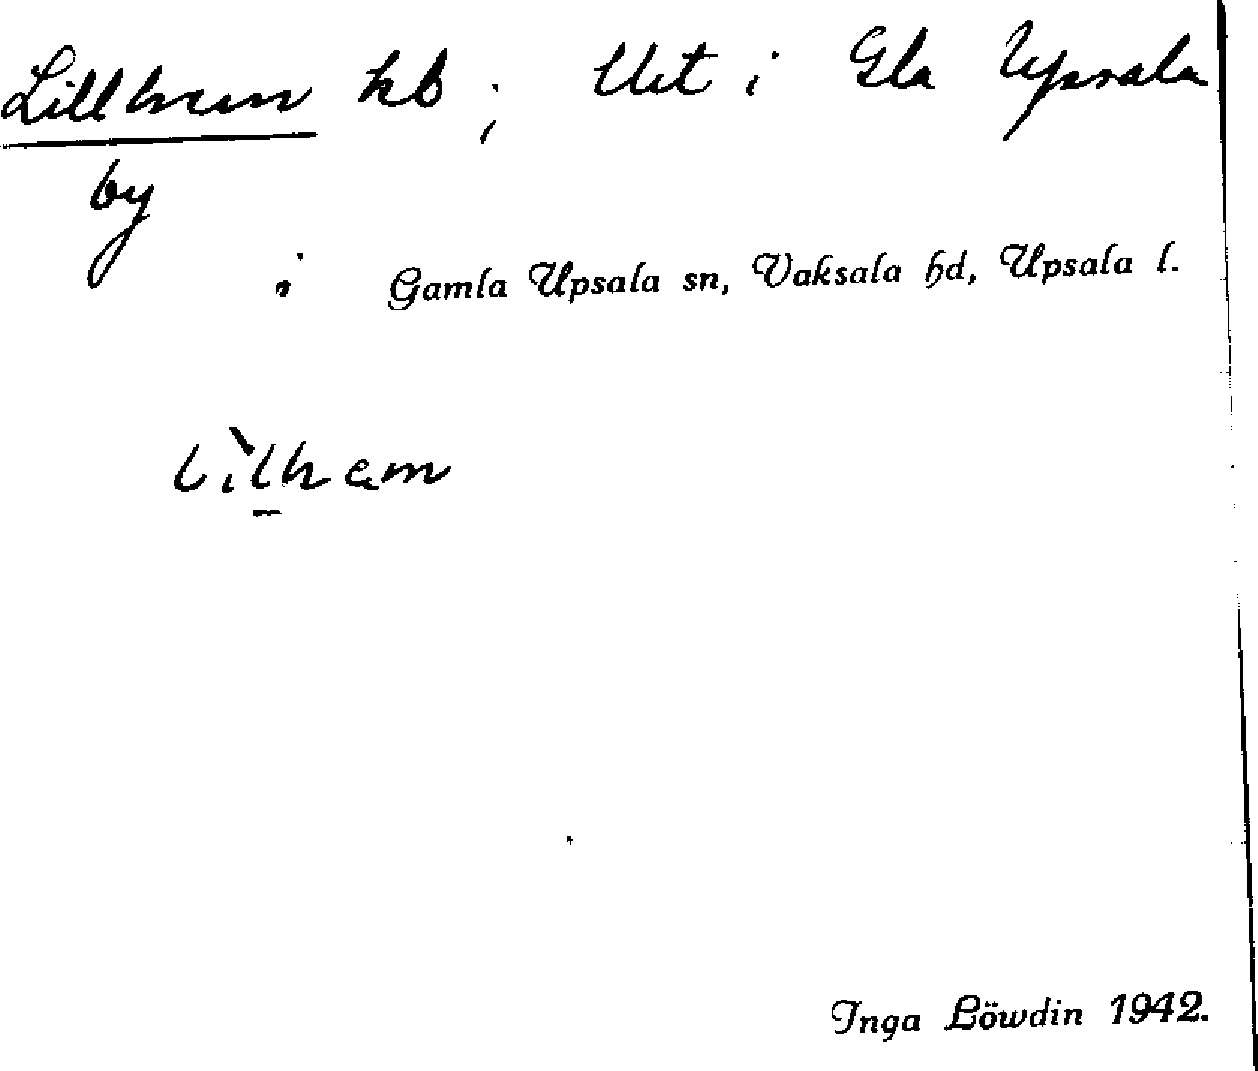 Lillhem hb; Ust i Gla Upsala
by
i Gamla Upsala sn, Vaksala hd, Upsala l.
lìlhem
Inga Löwdin 1942.